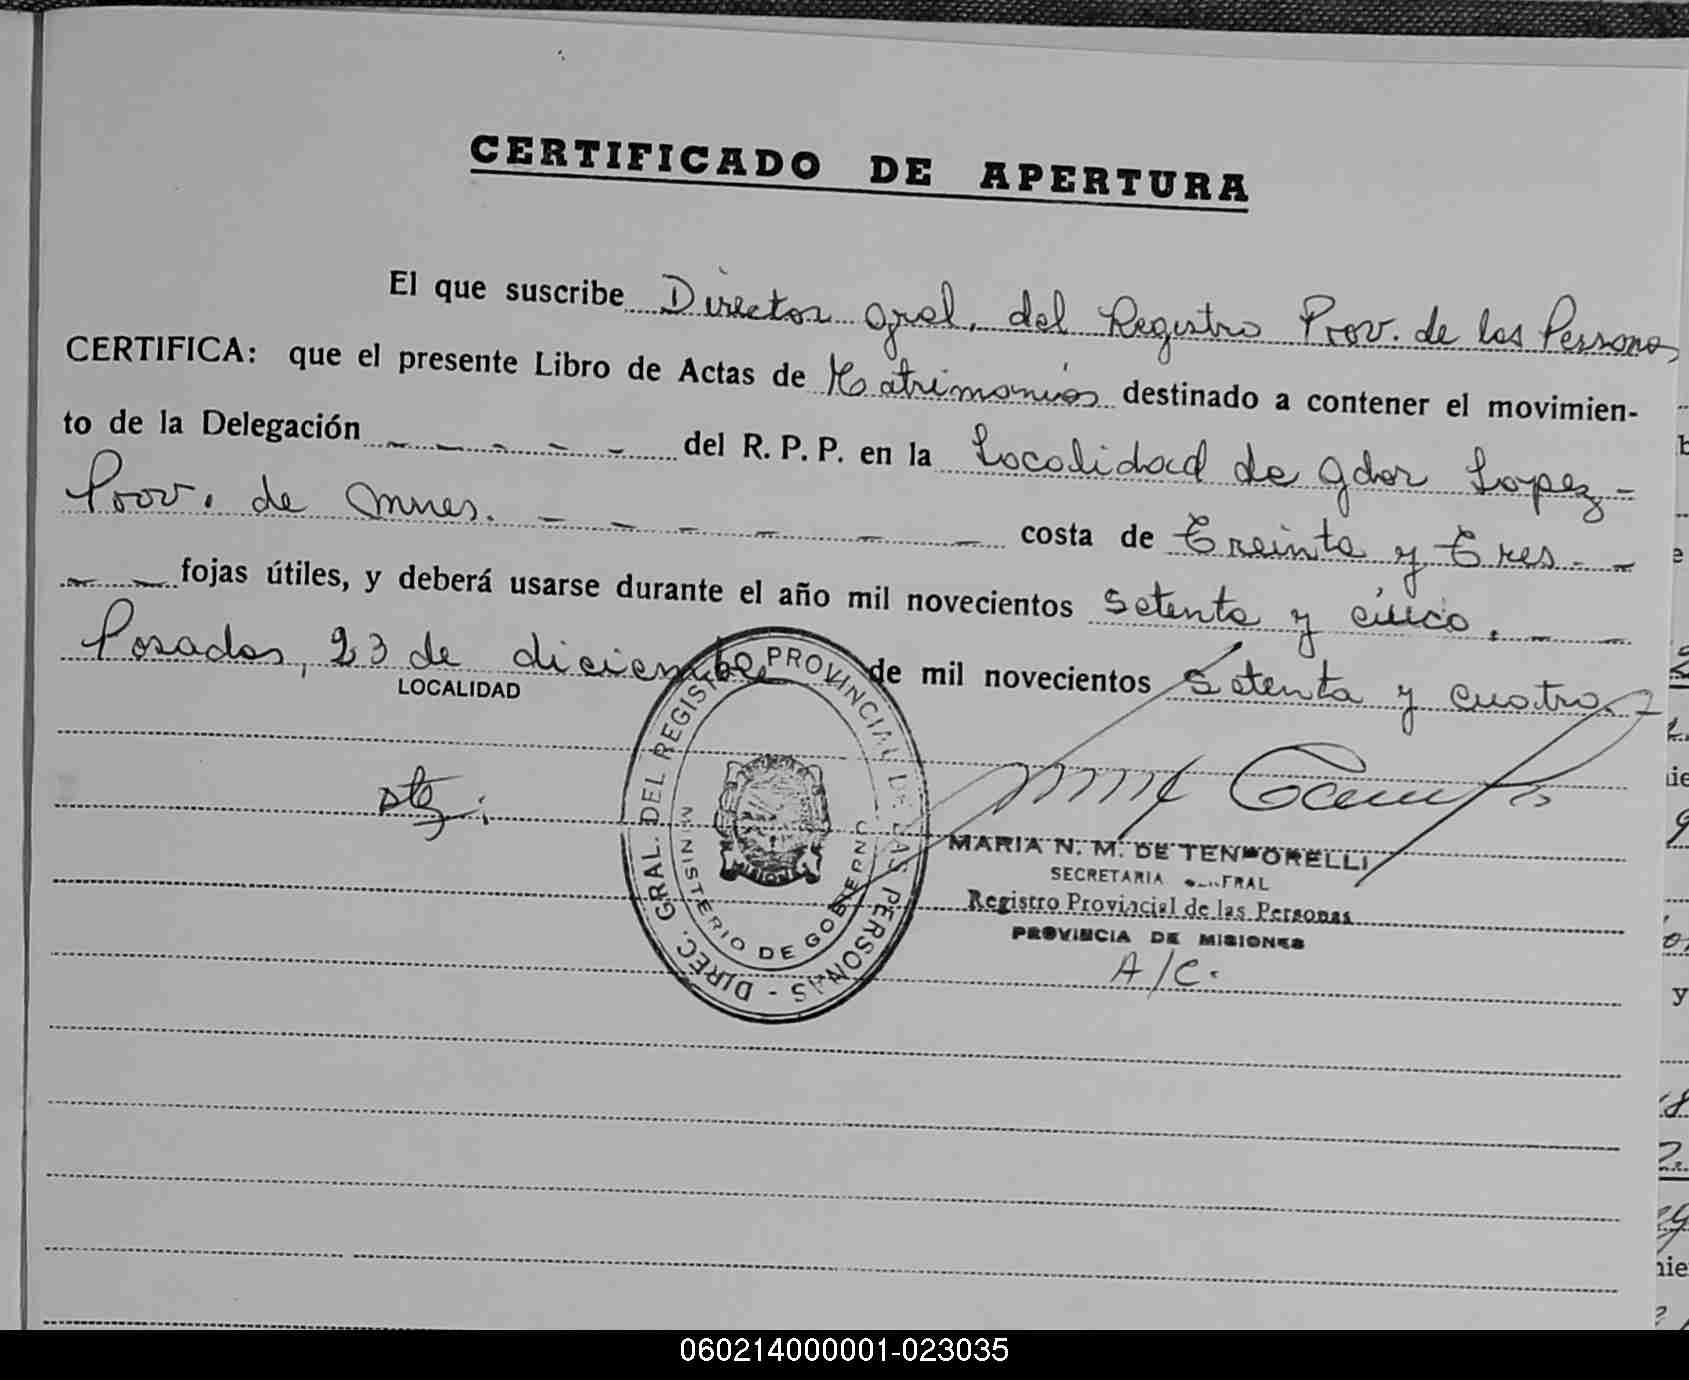 CERTIFICADO DE APERTURA
El que suscribe Director Gral. del Registro Prov. de las Personas
CERTIFICA: que el presente Libro de Actas de Matrimonios destinado a contener el movimien-
to de la Delegación — — — — — del R. P. P. en la Localidad de Gdor Lopez -
Prov. de Mnes. — — — — — — — costa de Treinta y Tres - -
— — fojas útiles, y deberá usarse durante el año mil novecientos Setenta y cinco. — —
Posadas, 23 de diciembre de mil novecientos Setenta y cuatro. -
LOCALIDAD
DIREC. GRAL. DEL REGISTRO PROVINCIAL DE LAS PERSONAS -
MINISTERIO DE GOBIERNO
MISIONES
MARIA N. M. DE TEMPORELLI
SECRETARIA GENERAL
Registro Provincial de las Personas
PROVINCIA DE MISIONES
A/C.
060214000001-023035